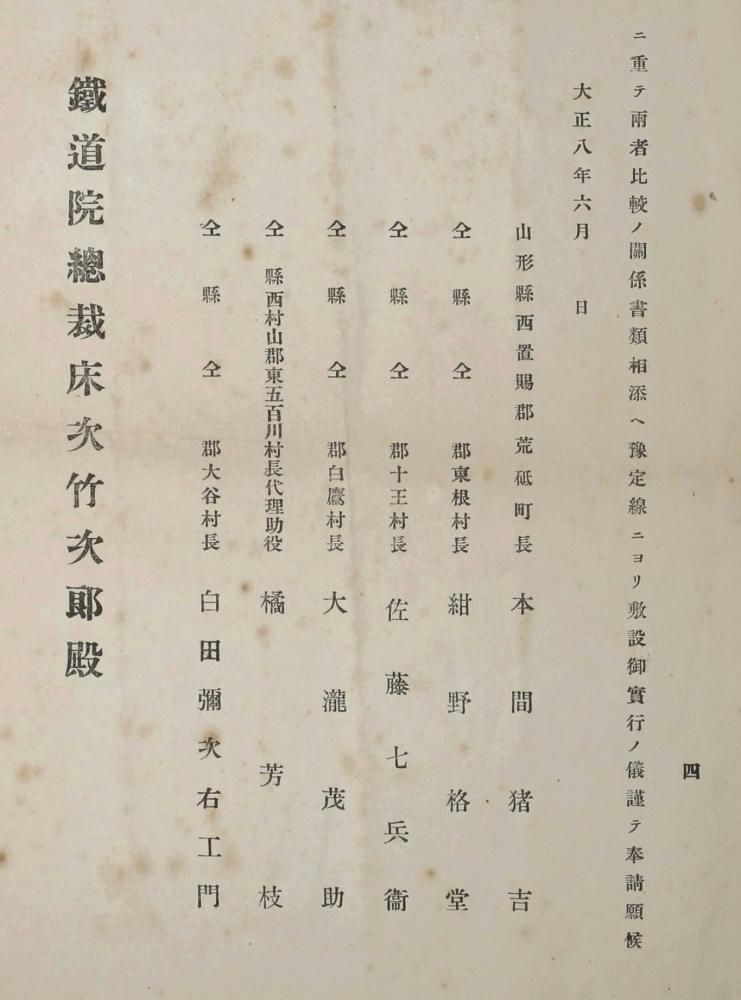 四
ニ重テ兩者比較ノ關係書類相添ヘ豫定線ニヨリ敷設御實行ノ儀謹テ奉請願候
大正八年六月　日
山形縣西置賜郡荒砥町長　本間猪吉
仝縣仝郡東根村長　紺野格堂
仝縣仝郡十王村長　佐藤七兵衞
仝縣仝郡白鷹村長　大瀧茂助
仝縣西村山郡東五百川村長代理助役　橘芳枝
仝縣仝郡大谷村長　白田彌次右工門
鐵道院總裁床次竹次郞殿